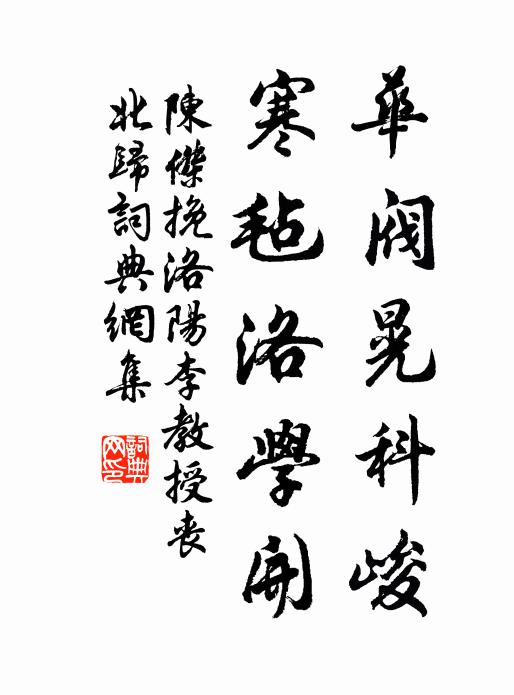 華閥晃科峻
寒毡洛學開
陳傑挽洛陽李教授喪
北歸詞典網集
詞典
网印